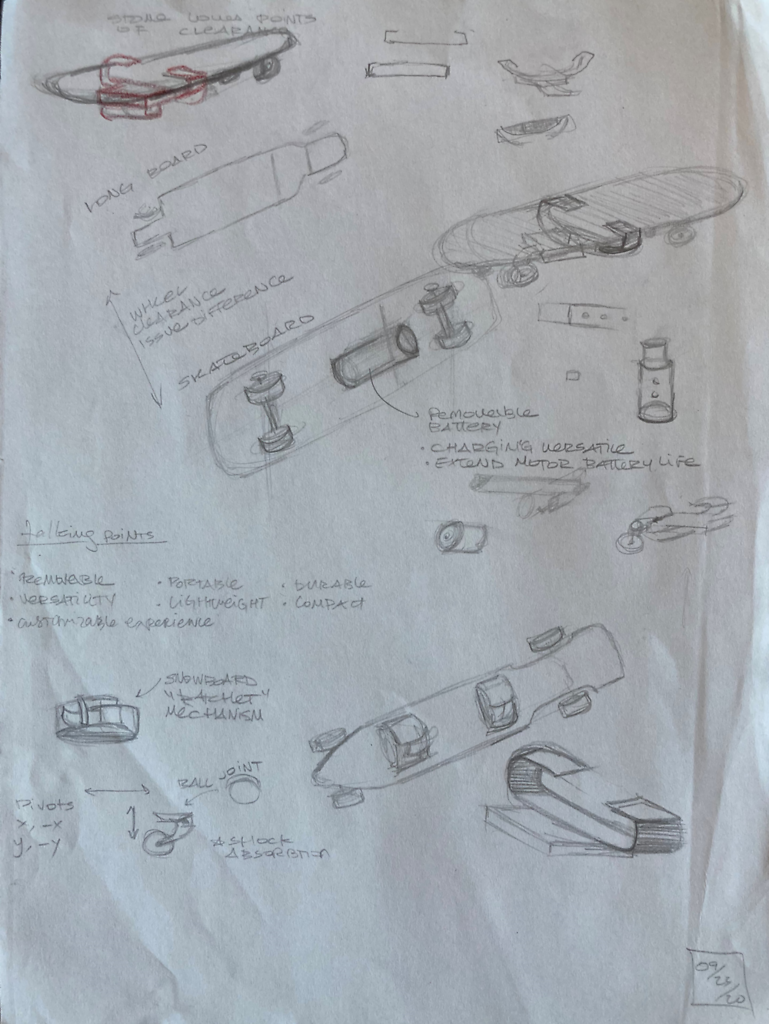 POINTS
OF CLEARANCE
LONG BOARD
WHEEL
CLEARANCE
ISSUE DIFFERENCE
SKATEBOARD
REMOVEABLE
BATTERY
• CHARGING VERSATILE
• EXTEND MOTOR BATTERY LIFE
talking POINTS
• REMOVABLE
• PORTABLE
• DURABLE
• VERSATILITY
• LIGHTWEIGHT
• COMPACT
• customizable experience
SNOWBOARD
"RACHET"
MECHANISM
BALL JOINT
Pivots
x, -x
y, -y
SHOCK
ABSORBTION